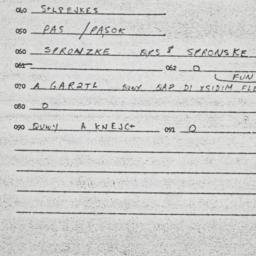 040 STLPEJKES
050 PAS / PASOK
060 SPRONZKE EPS 8 SPRONSKE
061 062 0
FUN
070 A GARZTL GAP DI YSIDIM FLE
080 0
090 QUWY A KNEJCH 091 0